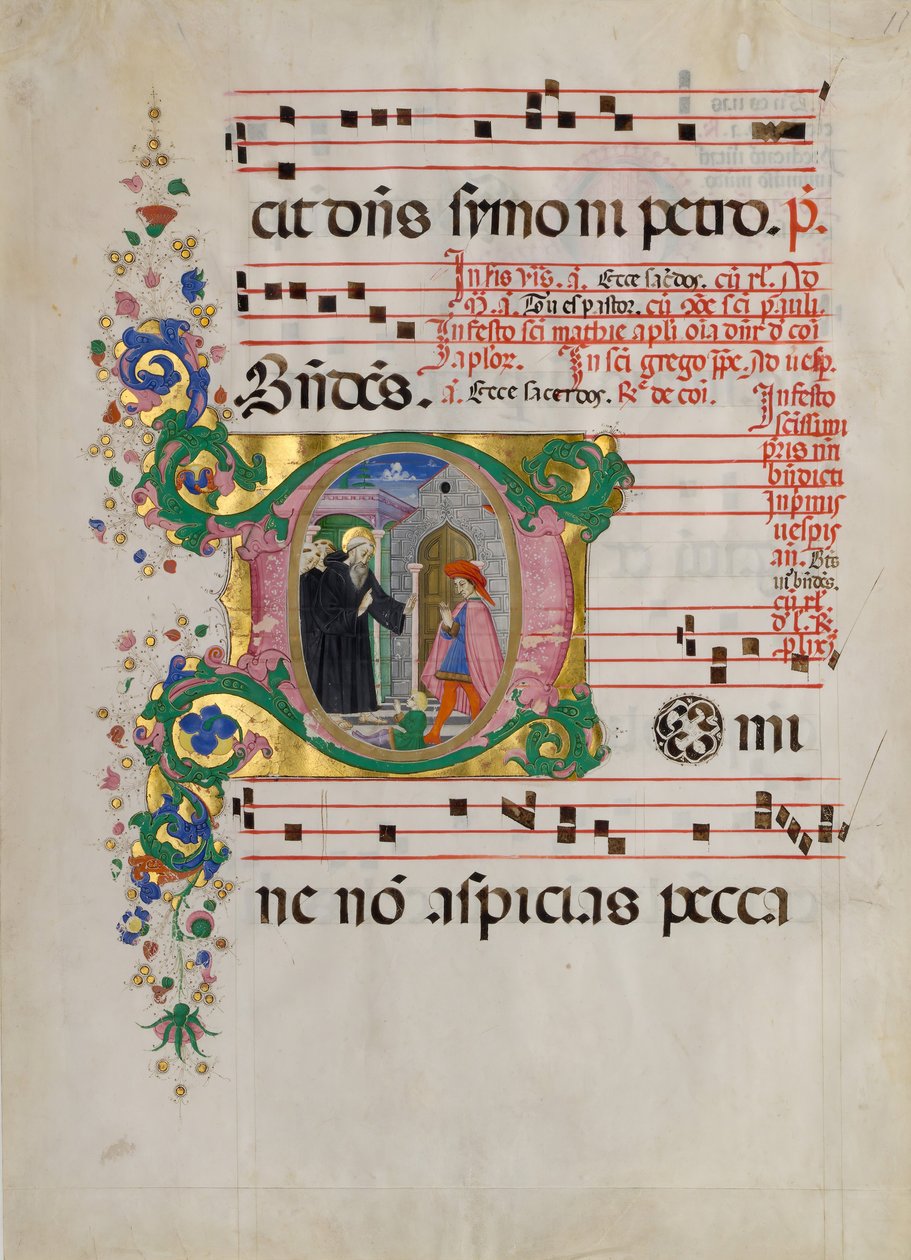 cit dn̄s symoni petro. p̄.
In fis vr̄is. a̅. Ecce sac̄dos. cū rl̄. Ad
m̄. a̅. Tu es pastor. cū om̄e sc̄i pauli.
In festo sc̄i mathie apl̄i oīa dn̄r d̄ cōi
aplōr. In sc̄i grego pp̄e. Ad uesp̄.
Bn̄dc̄s. a̅. Ecce sacerdos. R̄ de cōi.
In festo
sc̄issimi
pr̄is nr̄i
bn̄dicti
In pm̄is
uesp̄is
an̄.
bn̄dc̄s.
cū rl̄.
mi
ne nō aspicias pecca
11